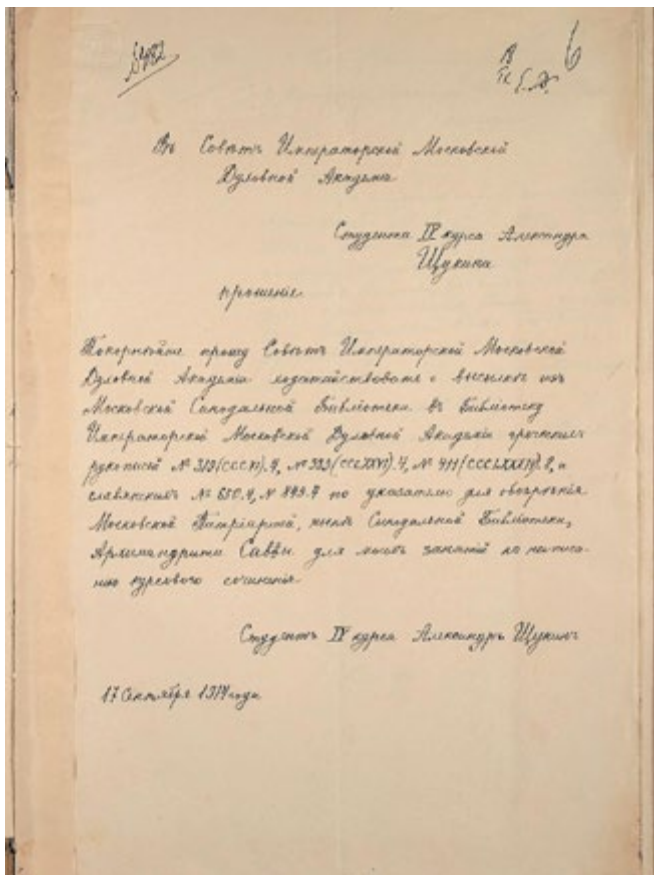 Въ Совѣтъ Императорской Московской
Духовной Академіи
Студента IV курса Александра
Щукина
прошеніе.
Покорнѣйше прошу Совѣтъ Императорской Московской
Духовной Академіи ходатайствовать о высылкѣ изъ
Московской Синодальной Библіотеки въ Библіотеку
Императорской Московской Духовной Академіи греческихъ
рукописей № (CCCXI).4, № (CCCLXXVI).4, № (CCCLXXXIV).8, и
славянскихъ № 650.4, № 849.4 по указателю для обозрѣнія
Московской Патріаршей, нынѣ Синодальной Библіотеки,
Архимандрита Саввы для моихъ занятій по написа-
нію курсового сочиненія.
Студентъ IV курса Александръ Щукинъ
17 Сентября 1914 года